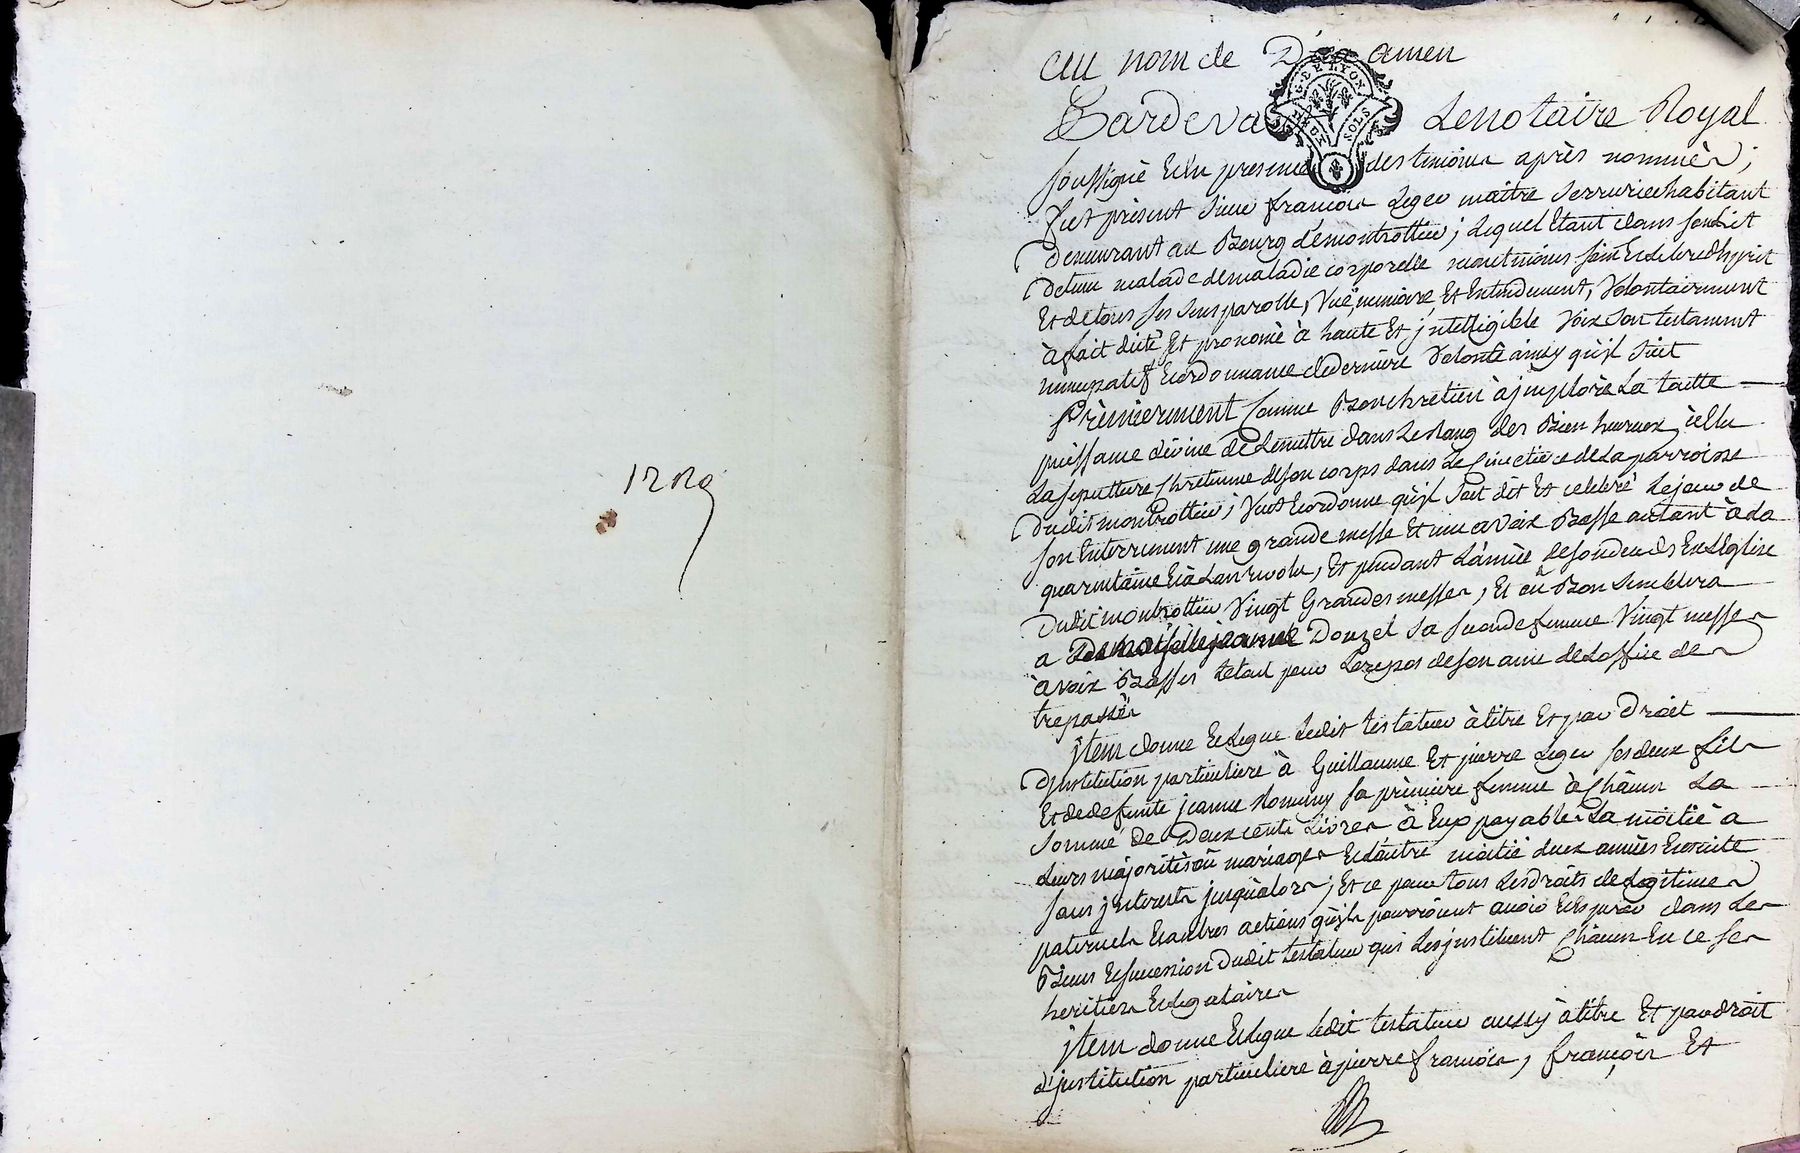 1709
Au nom de Dieu amen
G. DE LYON
MOYEN
SOLS
Pardeva Le notaire Royal
soussigné Et En presence des temoins après nommés ;
fut présent Sieur françois Leger maitre Serrurier habitant
Demeurant au Bourg de montrottier ; Lequel Etant dans son Lit
Detenu malade de maladie corporelle neantmoins sain Et Libre d'Esprit
Et de tous ses sens parolle, Vuë, memoire, Et Entendement, Volontairement
à fait dicté Et prononcé à haute Et jntelligible Voix son testament
nuncupatif Et ordonnance de derniere Volonté ainsy qu'jl suit
Prèmierement Comme Bon chrétien à jmploré La toutte
puissance divine de Le mettre dans Le Rang des Bien heureux, à Elu
La sepulture Chretienne de son corps dans Le Cimetiere de La parroisse
Dudit montrottier ; Veut Et ordonne qu'jl soit dit Et celebré Le jour de
son Enterrement une grande messe Et une a voix Basse autant à La
quarantaine Et à L'an revolu, Et pendant L'année de son deuil En L'Eglise
Dudit montrottier Vingt Grandes messes, Et où Bon Semblera
a Demoiselle jeanne Donzel Sa seconde femme Vingt messes
à voix Basses Le tout pour Le repos de son ame de L'office des
trepassés
jtem donne Et Legue Ledit testateur à titre Et par Droit
D'jnstitution particuliere à Guillaume Et pierre Leger ses deux fils
Et de defunte jeanne sa prèmiere femme à Châcun La
somme de Deux cents Livres à Eux payables La moitié à
Leurs majorités où mariages Et L'autre moitié deux années Ensuite
sans jnterests jusqu'alors ; Et ce pour tous Les droits de Legitimes
paternels Et autres actions qu'jls pourroient avoir Et Esperer dans Les
Biens Et succession Dudit testateur qui Les jnstituent Châcun En ce ses
heritiers Et Legataires
jtem donne Et Legue Ledit testateur aussy à titre Et par droit
d'jnstitution particuliere à pierre françois, françois Et